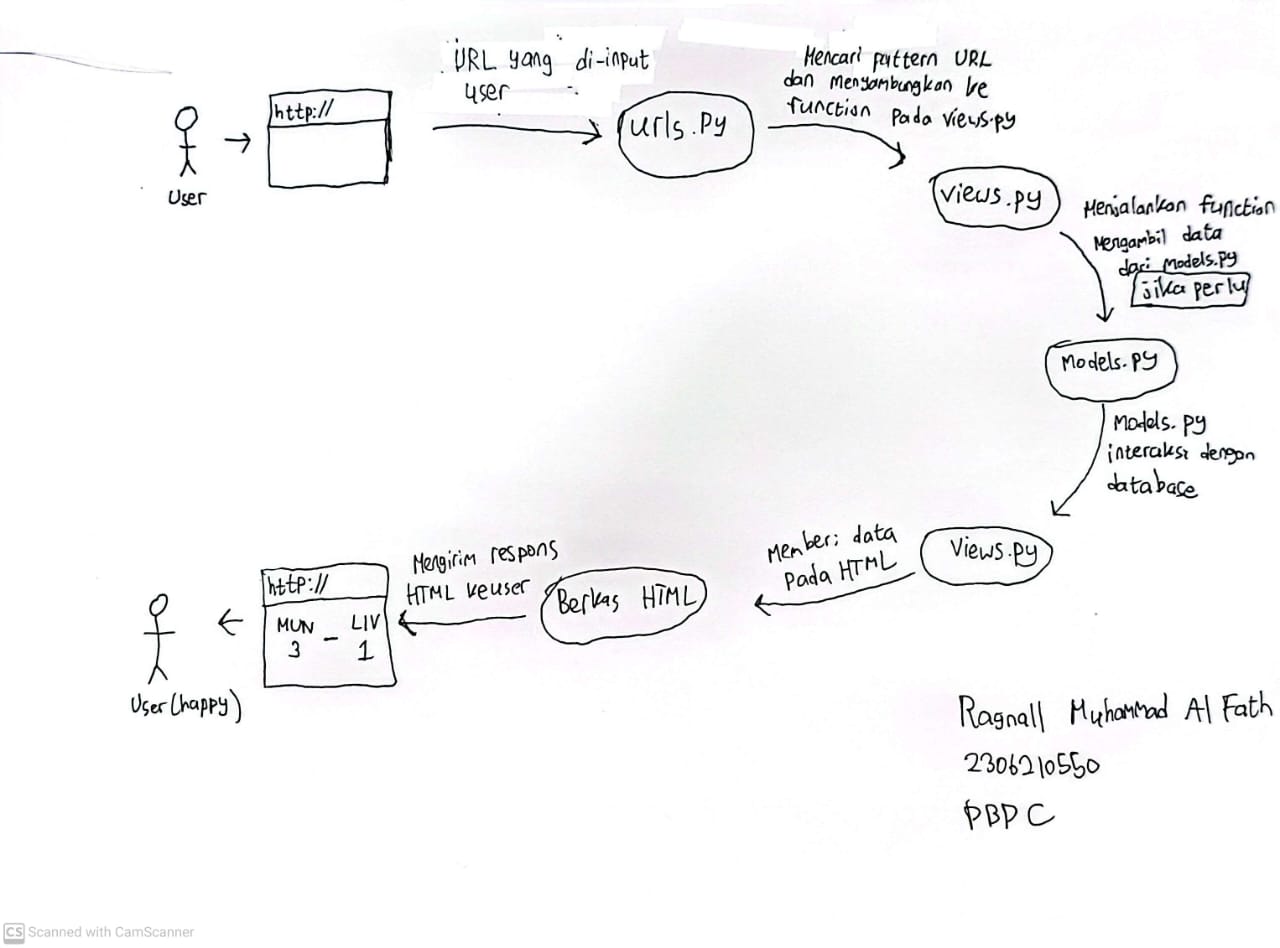 User
http://
URL yang di-input
user
urls.py
Mencari pattern URL
dan menyambungkan ke
function pada views.py
views.py
Menjalankan function
Mengambil data
dari Models.py
jika perlu
Models.py
Models.py
interaksi dengan
database
Views.py
Memberi data
pada HTML
Berkas HTML
Mengirim respons
HTML ke user
http://
MUN - LIV
3 1
User (happy)
Ragnall Muhammad Al Fath
2306210550
PBP C
CS Scanned with CamScanner